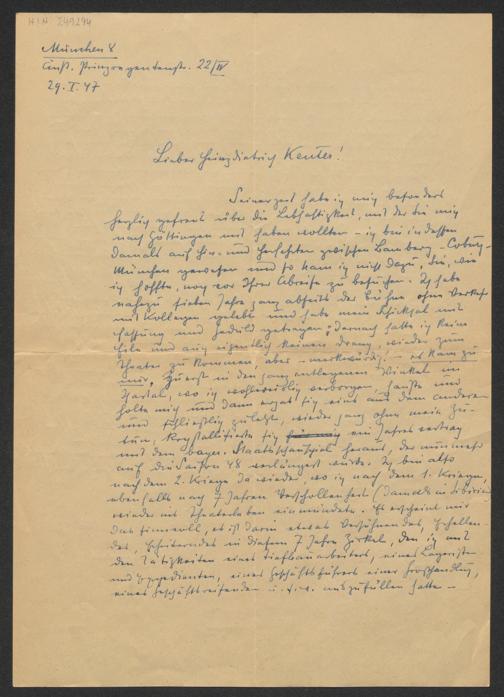 HIN 249294
München 8
Äuß. Prinzregentenstr. 22/IV
29. I. 47
Lieber Heinzdietrich Kenter!
Seinerzeit habe ich mich besonders
herzlich gefreut über die Lebhaftigkeit, mit der Sie mich
nach Göttingen mit haben wollten – ich bin indessen
damals auf Hin- und Herfahrten zwischen Bamberg – Coburg –
München gewesen und so kam ich nicht dazu, Sie, wie
ich hoffte, noch vor Ihrer Abreise zu besuchen. Ich habe
nahezu sieben Jahre ganz abseits der Bühne ohne Verkehr
mit Kollegen gelebt und habe mein Schicksal mit
Fassung und Geduld getragen; demnach hatte ich keine
Eile und auch eigentlich keinen Drang, wieder zum
Theater zu kommen, aber – merkwürdig! – es kam zu
mir. Zuerst in den ganz entlegenen Winkel im
Harztal, wo ich wohlweislich verborgen, hauste und
holte mich und dann ergab sich eins aus dem anderen
und schließlich zuletzt, wieder ganz ohne mein Zu-
tun, krystallisierte sich ein Jahresvertrag
mit dem bayer. Staatsschauspiel heraus, der nunmehr
auf die Saison 48 verlängert wurde. Ich bin also
nach dem 2. Kriege da wieder, wo ich nach dem 1. Kriege,
ebenfalls nach 7 Jahren Verschollenheit (damals in Sibirien)
wieder ins Theaterleben einmündete. Es erscheint mir
das sinnvoll, es ist darin etwas Versöhnendes, Erhellen-
des, Erheiterndes in diesem 7 Jahre Zirkel, den ich mit
den Tätigkeiten eines Tiefbauarbeiters, eines Lageristen
und Expedienten, eines Geschäftsführers einer Großhandlung,
eines Geschäftsreisenden u.s.w. auszufüllen hatte –